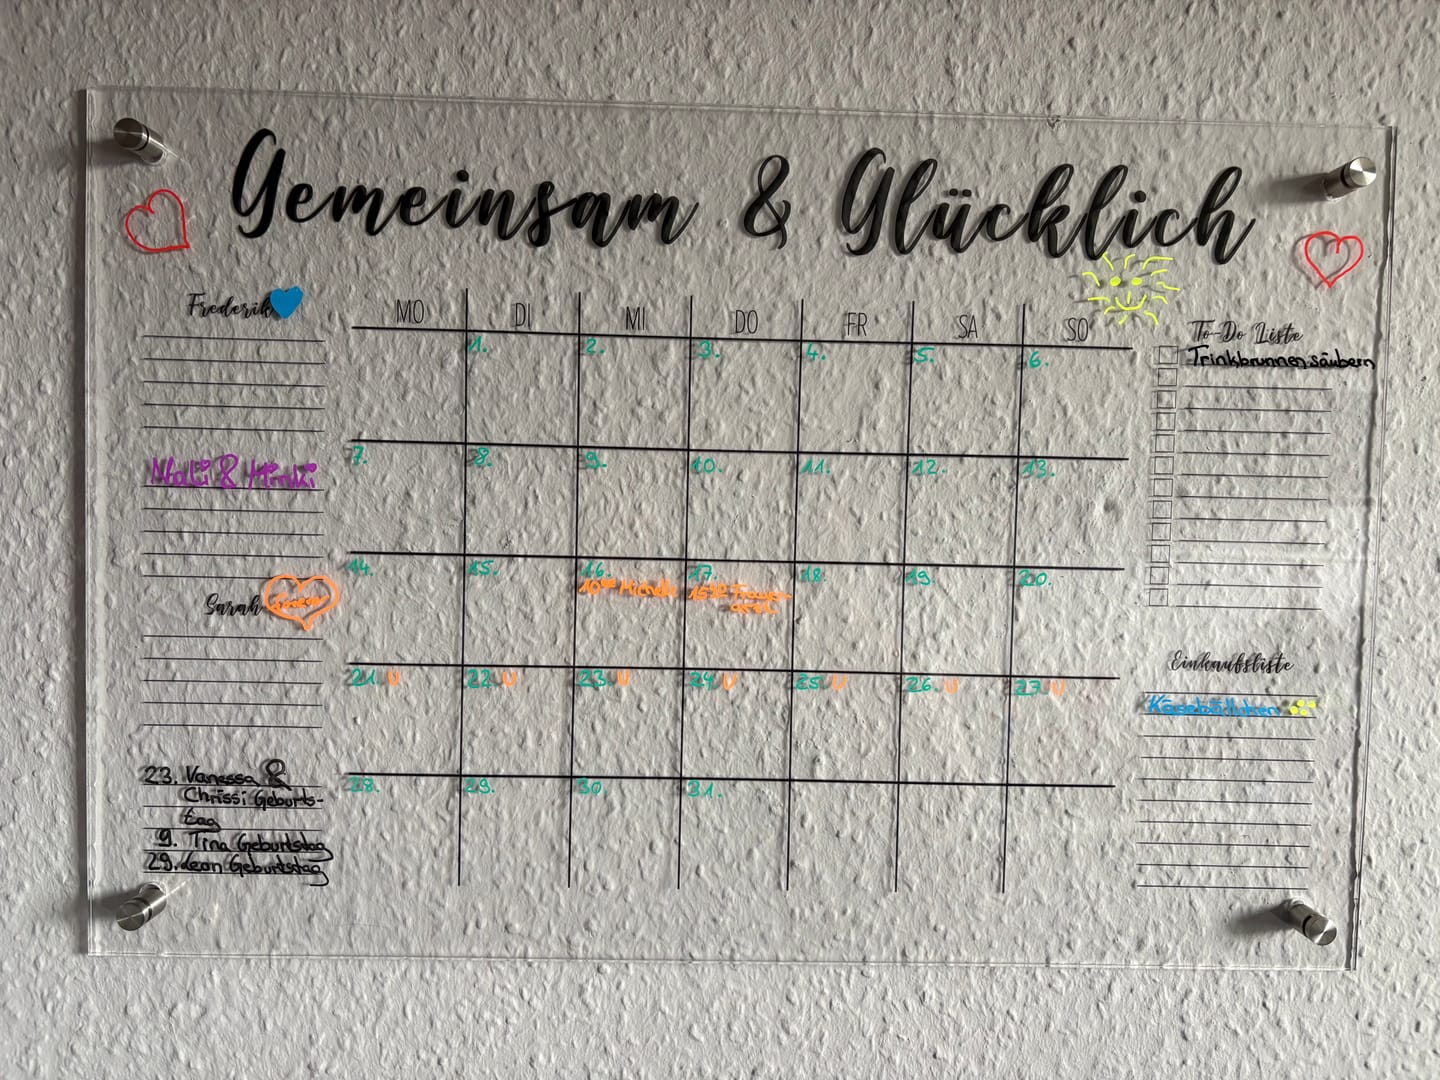 Gemeinsam & Glücklich
Frederik
Nali & Minki
Sarah
23. Vanessa &
Chrissi Geburts-
tag
9. Tina Geburtstag
29. Leon Geburtstag
MO DI MI DO FR SA SO
1. 2. 3. 4. 5. 6.
7. 8. 9. 10. 11. 12. 13.
14. 15. 16. 17. 18. 19 20.
10⁰⁰ 15³⁰
21. U 22. U 23. U 24. U 25. U 26. U 27. U
28. 29. 30 31.
To-Do Liste
Trinkbrunnen säubern
Einkaufsliste
Käsebällchen